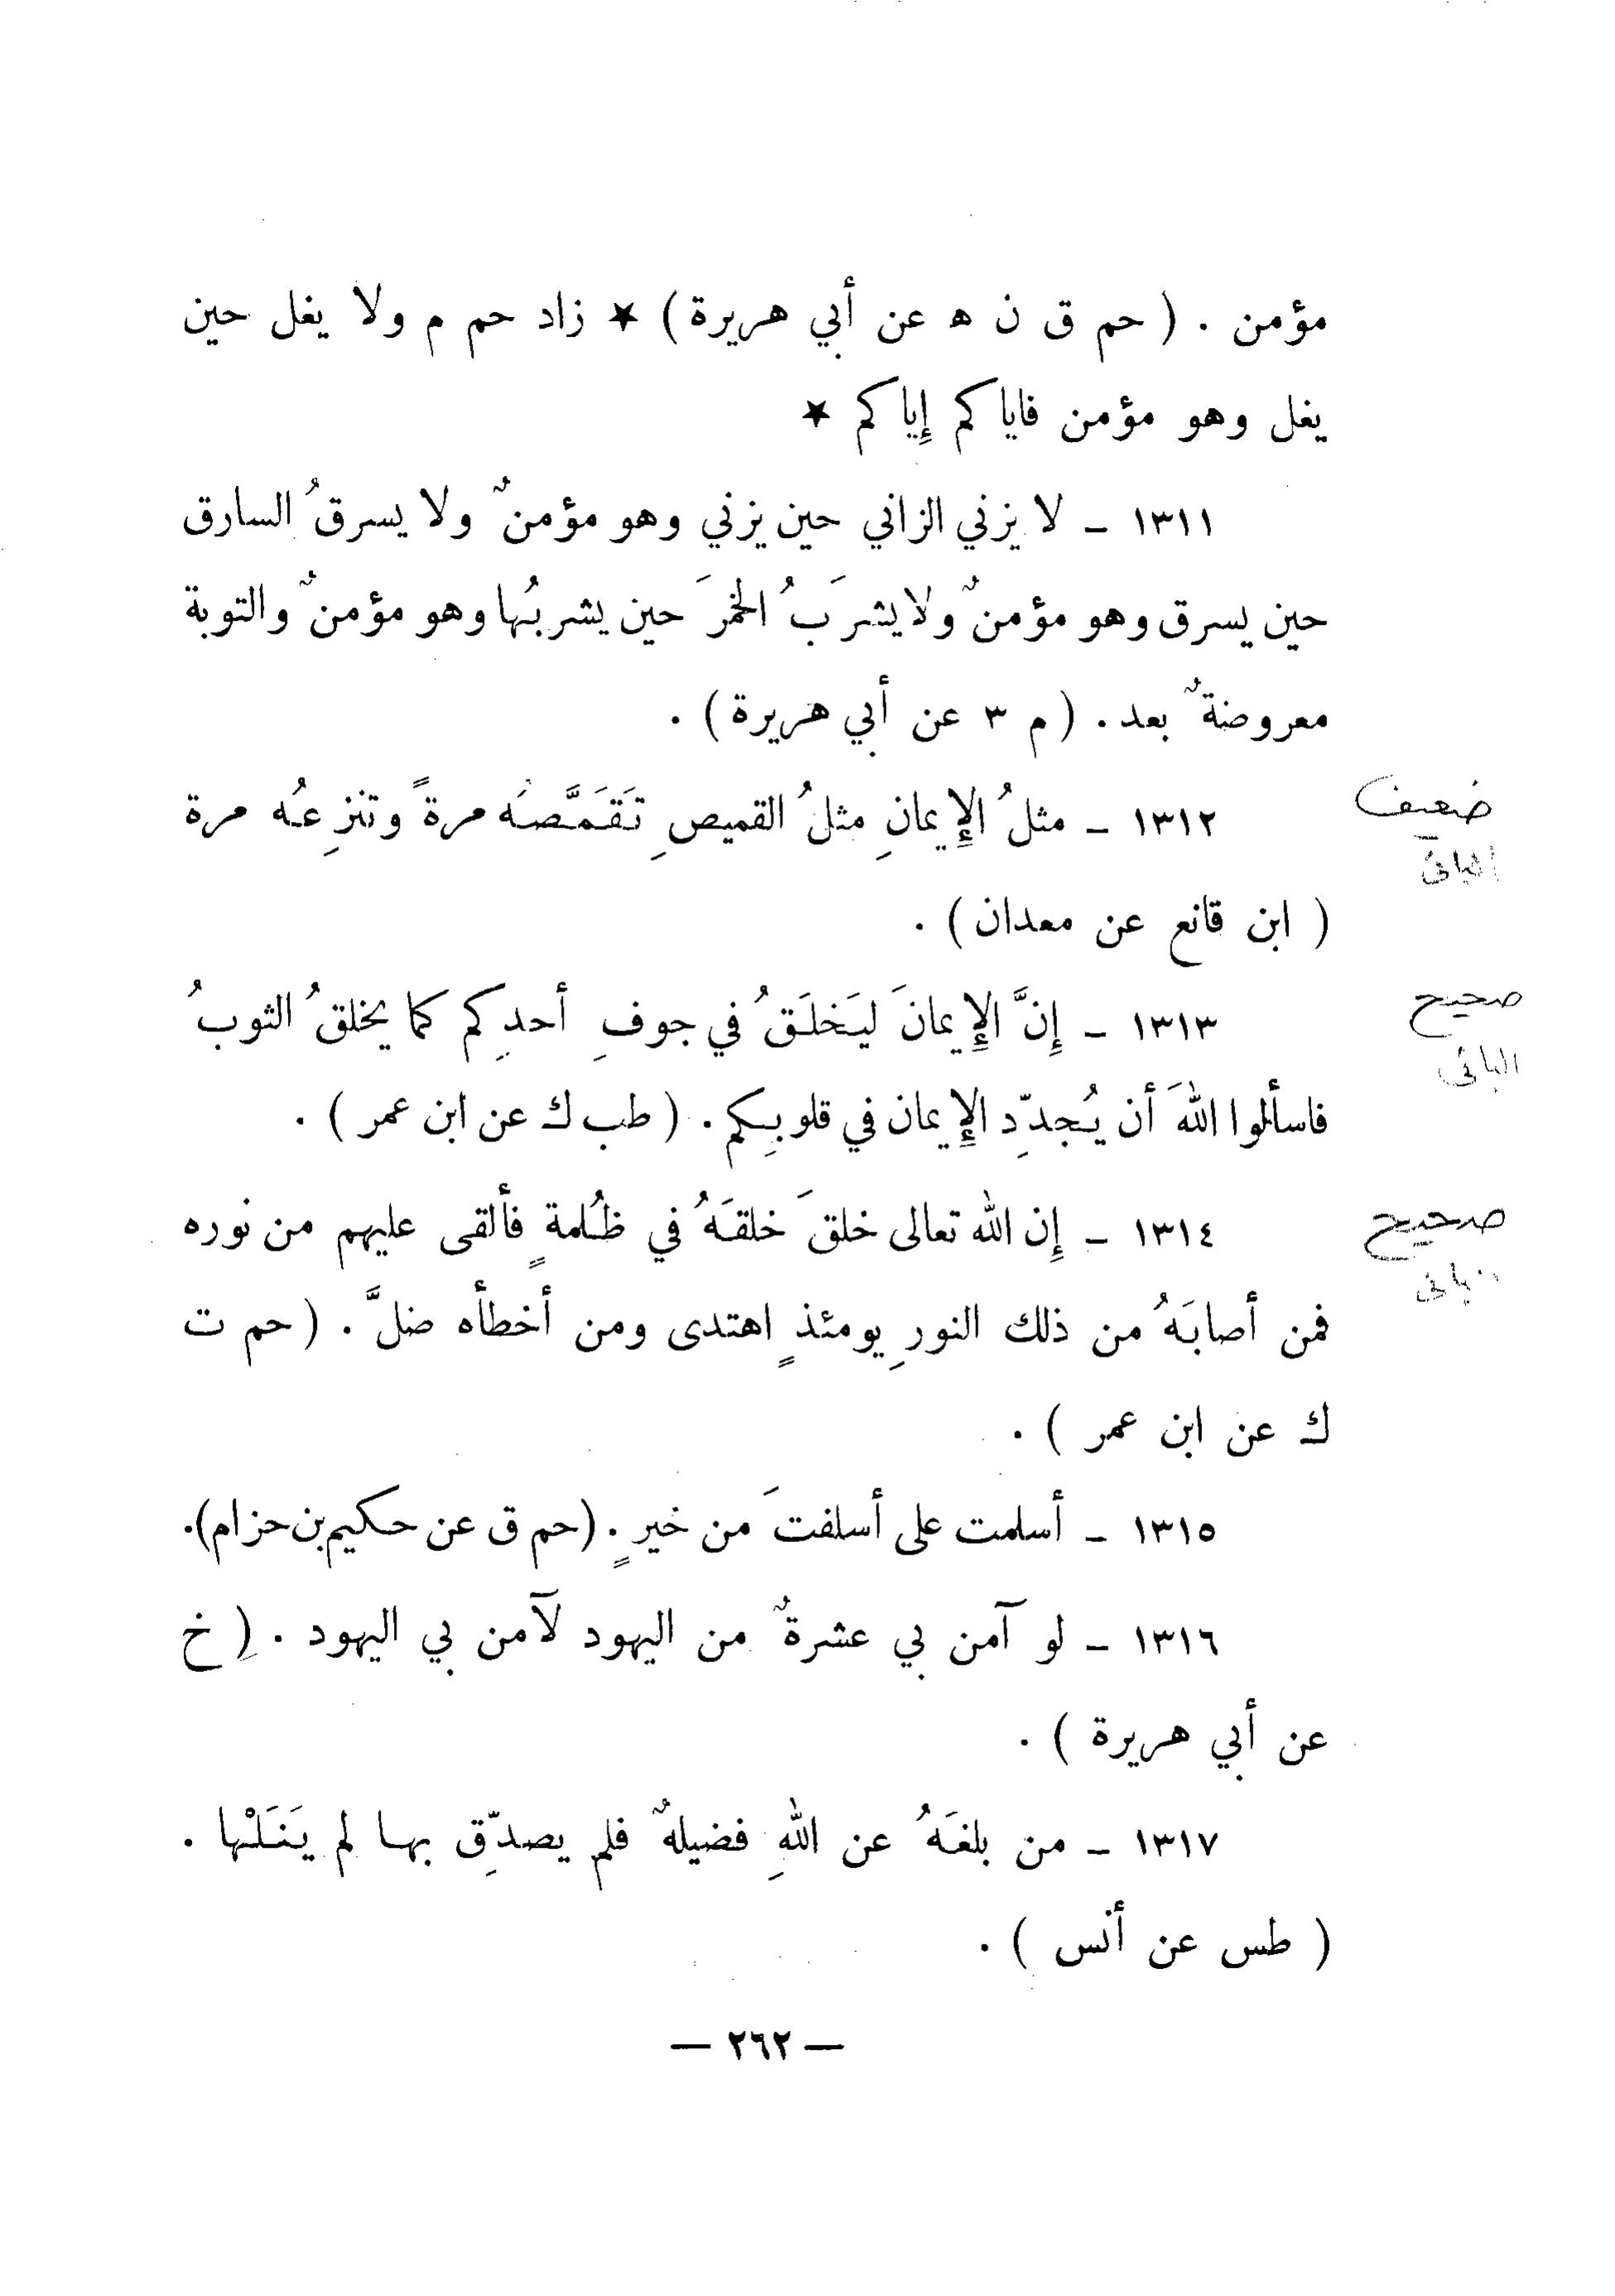 مؤمن . ( حم ق ن ه عن أبي هريرة ) ★ زاد حم م ولا يغل حين
يغل وهو مؤمن فاياكم إياكم ★
١٣١١ ـ لا يزني الزاني حين يزني وهو مؤمنٌ ولا يسرقُ السارق
حين يسرق وهو مؤمنٌ ولا يشرَبُ الخمرَ حين يشربُها وهو مؤمنٌ والتوبة
معروضةٌ بعد . ( م ٣ عن أبي هريرة ) .
١٣١٢ ـ مثلُ الإِيمانِ مثلُ القميصِ تَقَمَّصَه مرةً وتنزِعُه مرة
ضعيف
البانى
( ابن قانع عن معدان ) .
١٣١٣ ـ إِنَّ الإِيمانَ ليَخلَقُ في جوفِ أحدِكم كما يخلقُ الثوبُ
صحيح
البانى
فاسألوا اللهَ أن يُجدِّد الإِيمان في قلوبِكم . ( طب ك عن ابن عمر ) .
١٣١٤ ـ إِن الله تعالى خلقَ خلقَهُ في ظُلمةٍ فألقى عليهم من نوره
صحيح
فمن أصابَهُ من ذلك النورِ يومئذٍ اهتدى ومن أخطأه ضلَّ . ( حم ت
ك عن ابن عمر ) .
١٣١٥ ـ أسلمت على أسلفتَ من خيرٍ . ( حم ق عن حكيم بن حزام ).
١٣١٦ ـ لو آمن بي عشرةٌ من اليهود لآمن بي اليهود . ( خ
عن أبي هريرة ) .
١٣١٧ ـ من بلغَهُ عن اللهِ فضيلهٌ فلم يصدِّق بها لم يَنَلْها .
( طس عن أنس ) .
— ٢٦٢ —